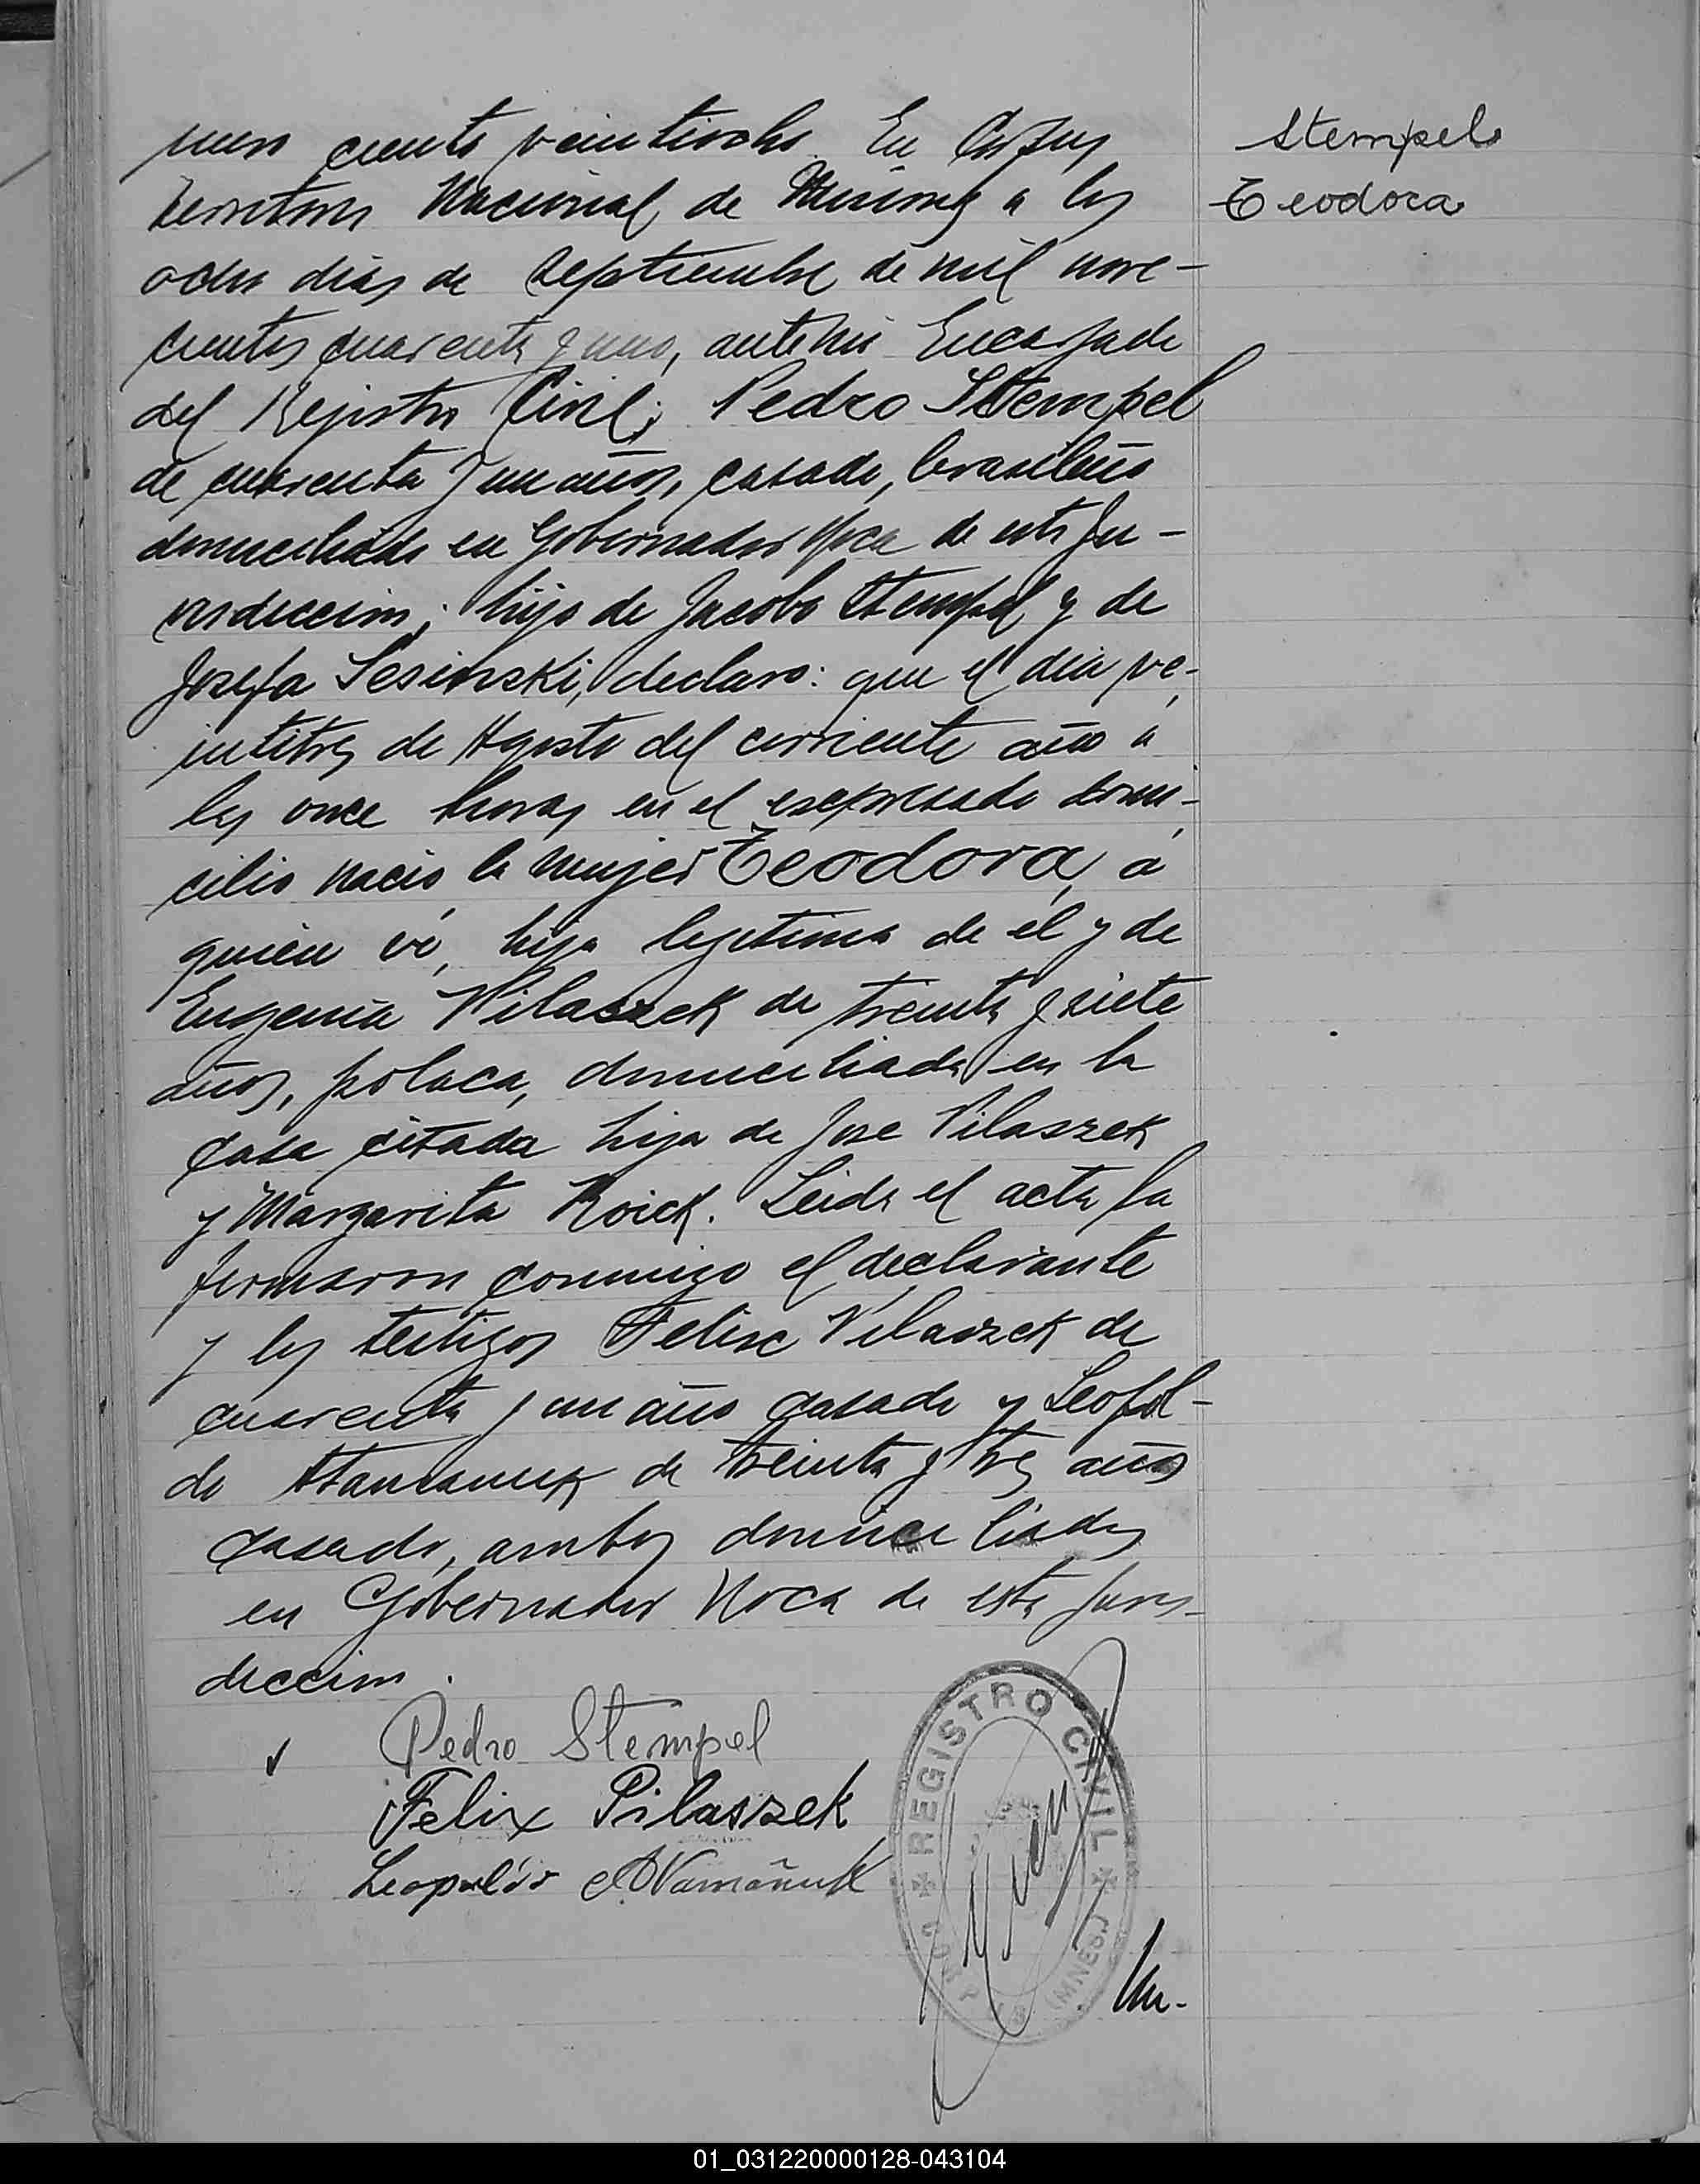 Stempel
Teodora
mero ciento veintiocho. En Corpus
Territorio Nacional de Misiones a los
ocho dias de Septiembre de mil nove-
cientos cuarenta y uno, ante mi Encargado
del Registro Civil; Pedro Stempel
de cuarenta y un años, casado, brasileño
domiciliado en Gobernador Roca de esta Ju-
risdiccion; hijo de Jacobo Stempel y de
Josefa Sesinski, declaro: que el dia ve-
intitres de Agosto del corriente año a
las once horas en el expresado domi-
cilio nacio la mujer Teodora, a
quien vi, hija legitima de él y de
Eugenia Pilaszek de treinta y siete
años, polaca, domiciliada en la
casa citada hija de Jose Pilaszek
y Margarita Koick. Leida el acta la
firmaron conmigo el declarante
y los testigos Felix Pilaszek de
cuarenta y un año casado y Leopol-
do de treinta y tres años
casado, ambos domiciliados
en Gobernador Roca de esta juris-
diccion.
Pedro Stempel
Felix Pilaszek
Leopoldo
REGISTRO CIVIL
(MNES.)
01_031220000128-043104